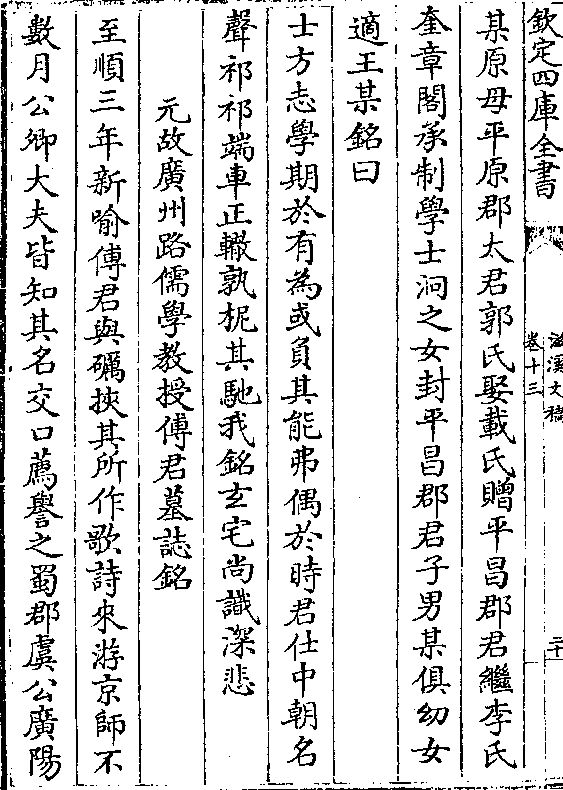 欽定四庫全書
滋溪文稿
卷十三
二十
某原母平原郡太君郭氏娶載氏贈平昌郡君繼李氏
奎章閣承制學士泂之女封平昌郡君子男某俱幼女
適王某銘曰
士方志學期於有為或負其能弗偶於時君仕中朝名
聲祁祁端車正轍孰柅其馳我銘玄宅尚識深悲
元故廣州路儒學教授傅君墓誌銘
至順三年新喻傅君與礪挾其所作歌詩來游京師不
數月公卿大夫皆知其名交口薦譽之蜀郡虞公廣陽